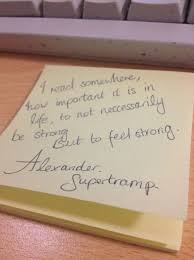 I read somewhere,
how important it is in
life, to not neccessarily
be strong
But to feel strong.
Alexander.
Supertramp